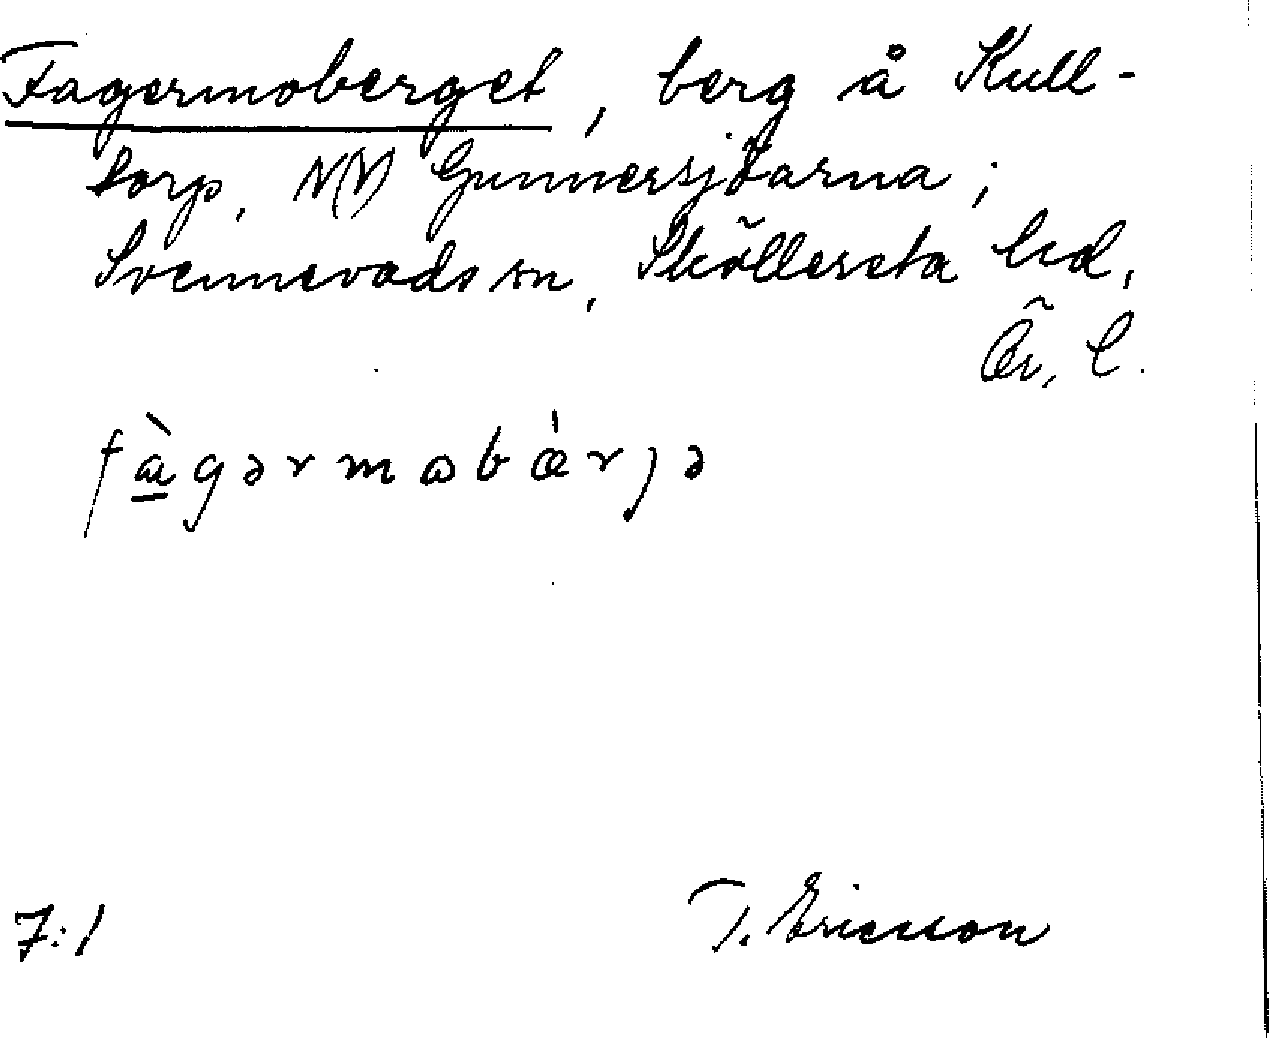 Fagermoberget, berg å Kull-
torp, NV Gunnersjöarna;
Svennevads sn, Sköllersta hd,
Ör. l.
fàgərmobǽrjə
7:1
T. Ericsson